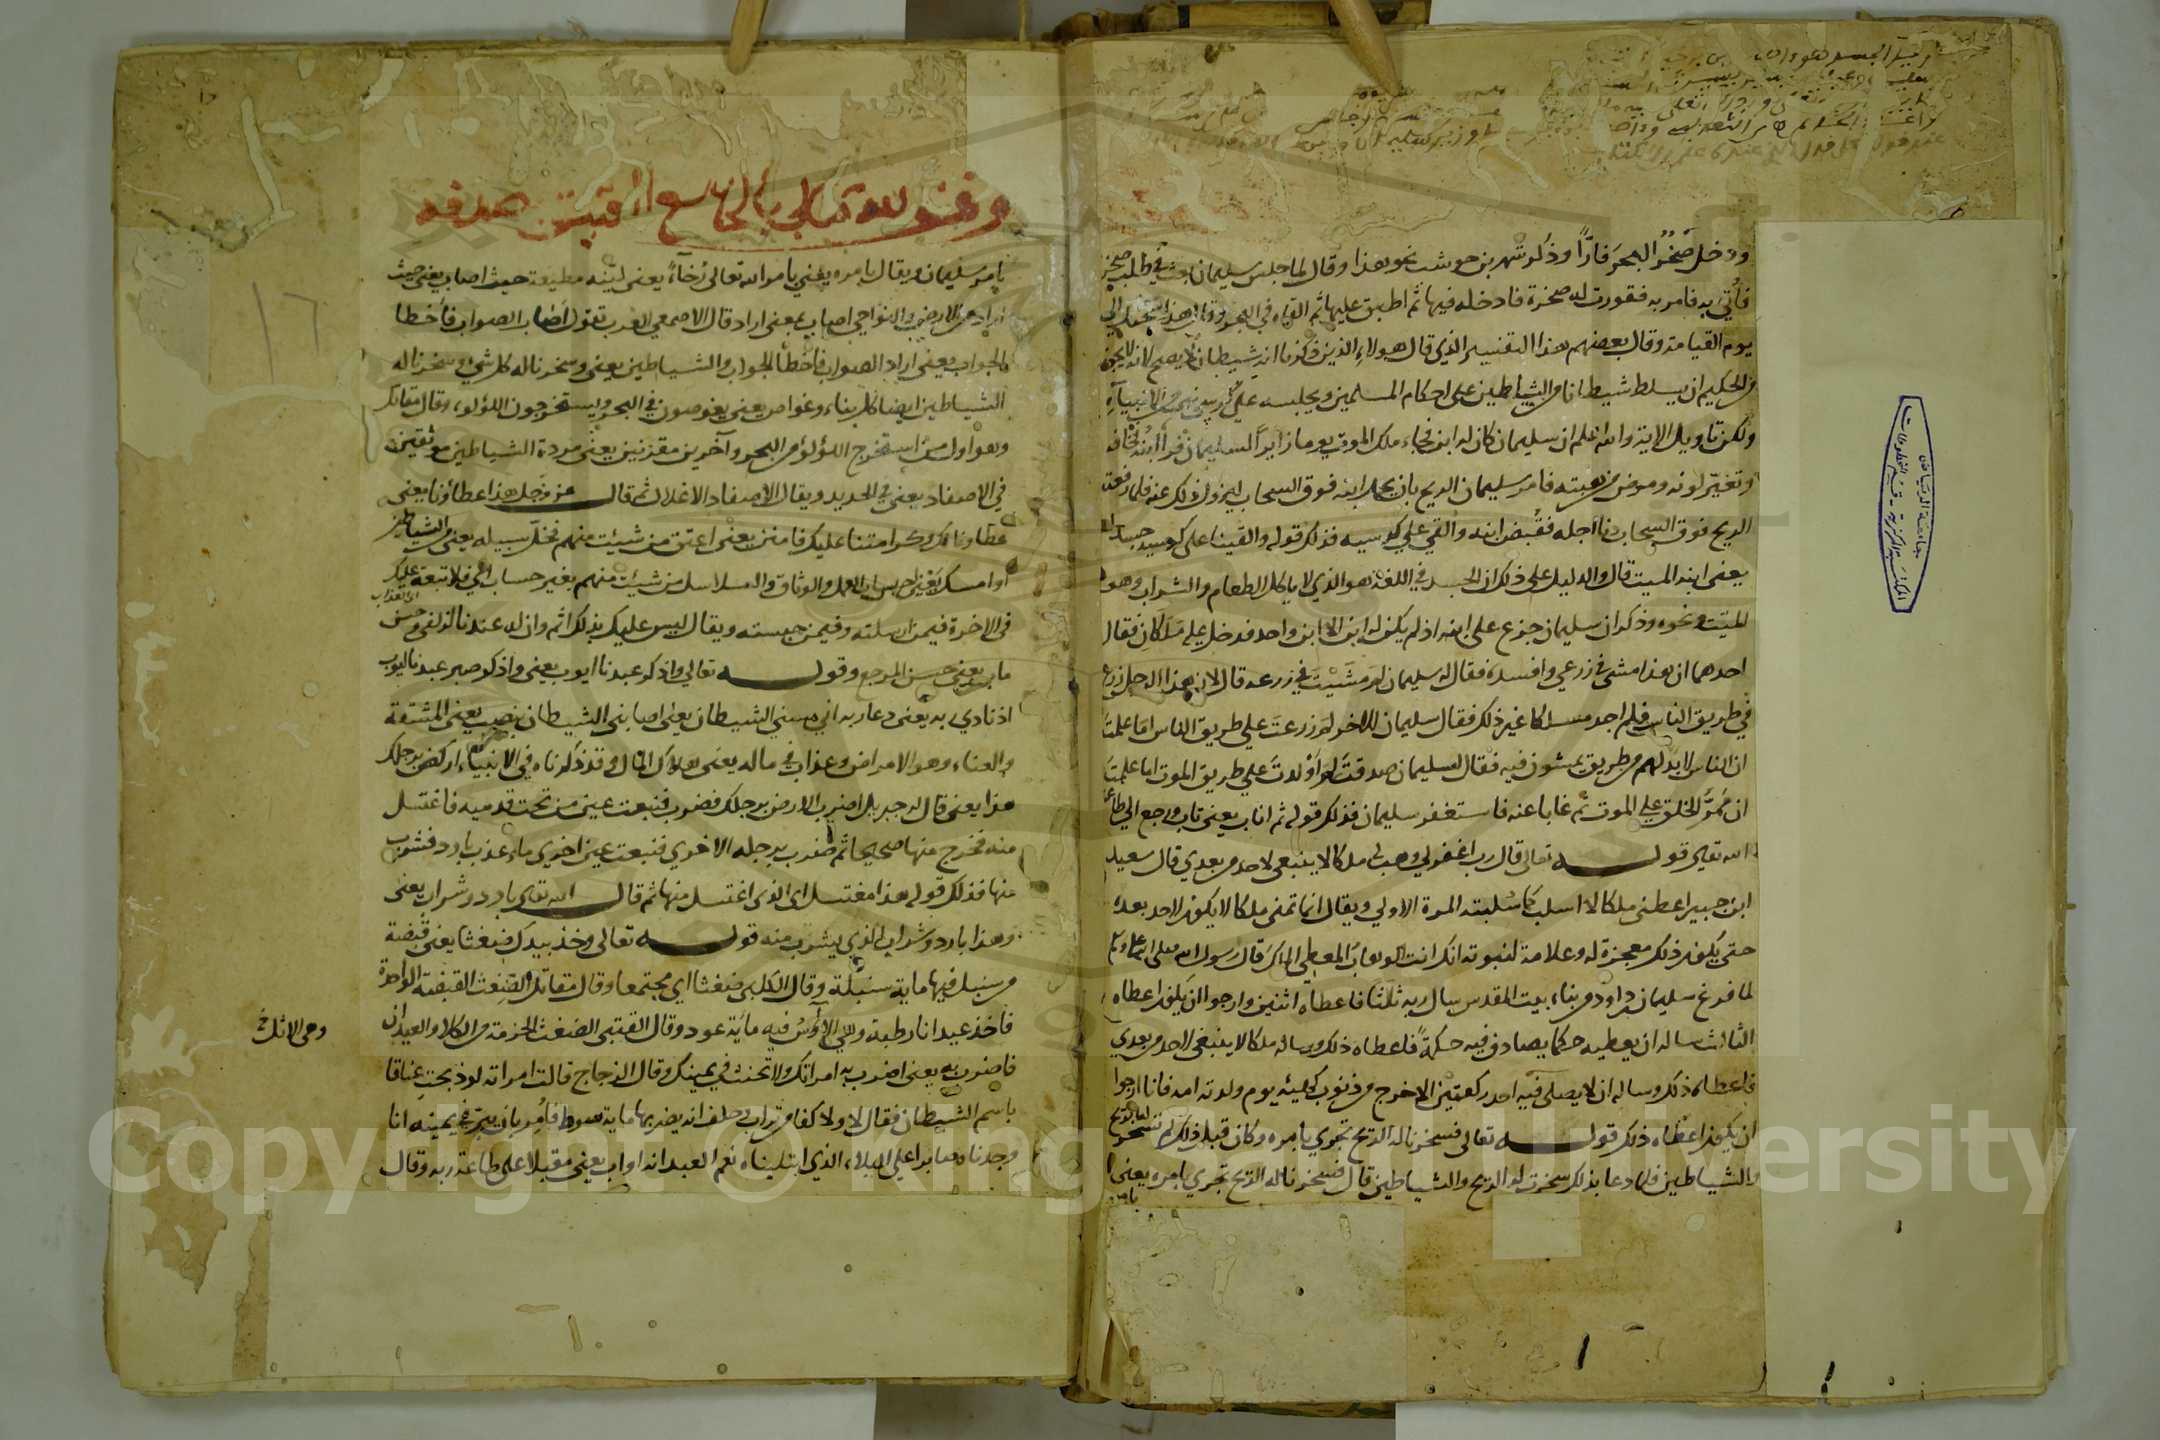 ودخل صخرُ البحرَ فارًّا وذكر شهر بن حوشب نحو هذا وقال لما جلس سليمان بعث في طلب صخر
فأُتي به فامر به فقورت له صخرة فادخله فيها ثم اطبق عليها ثم القاه في البحر وقال هذا سجنك الى
يوم القيامة وقال بعضهم هذا التفسير الذي قال هولاء الذين ذكرنا انه شيطان لا يصح لانه لا يجوز
من الحكيم ان يسلط شيطانا من الشياطين على احكام المسلمين ويجلسه على كرسي نبي من الانبياء
ولكن تاويل الاية والله اعلم ان سليمان كان له ابن فجاء ملك الموت يوما زايراً لسليمان فرأى ابنه فخافه
وتغيّر لونه ومرض من هيبته فامر سليمان الريح بان يحمل ابنه فوق السحاب ليزول ذلك عنه فلما رفعته
الريح فوق السحاب دنا اجله فقُبض ابنه والقي على كرسيه فذلك قوله والقينا على كرسيه جسدا
يعنى ابنه الميت قال والدليل على ذلك ان الجسد في اللغة هو الذي لا ياكل الطعام والشراب وهو
الميّت ونحوه وذكر ان سليمان جزع على ابنه اذ لم يكن له ابن الا ابن واحد فدخل عليه ملكان فقال
احدهما ان هذا مشى في زرعي وافسده فقال له سليمان لم مَشَيْت في زرعه قال لان هذا الرجل زرع
في طريق الناس فلم اجد مسلكا غير ذلك فقال سليمان للاخر لم زرعت على طريق الناس اما علمت
ان الناس لا بد لهم من طريق يمشون فيه فقال لسليمان صدقت لم اولدت على طريق الموت اما علمت
ان ممرّ الخلق على الموت ثم غابا عنه فاستغفر سليمان فذلك قوله ثم اناب يعني تاب ورجع الى طاعة
الله تعالى قوله تعالى قال رب اغفر لي وهب لي ملكا لا ينبغي لاحد من بعدي قال سعيد
ابن جبير اعطني ملكا لا اسلب كما سُلبته المرة الاولي ويقال انما تمنى ملكا لا يكون لاحد بعده
حتى يكون ذلك معجزة له وعلامة لنبوته انك انت الوهاب المعطي الملك قال رسول الله صلى الله عليه وسلم
لما فرغ سليمان بن داود من بناء بيت المقدس سال ربه ثلثا فاعطاه اثنين وارجوا ان يكون اعطاه
الثالث ساله ان يعطيه حكما يصادف فيه حكمةً فاعطاه ذلك وساله ملكا لا ينبغي لاحد من بعدي
فاعطاه ذلك وساله ان لا يصلي فيه احد ركعتين الا خرج من ذنوبه كهيئه يوم ولدته امه فانا ارجوا
ان يكون اعطاه ذلك قوله تعالى فسخرنا له الريح تجري بامره وكان قبل ذلك لم تسخر له الريح
والشياطين فلما دعا بذلك سخرت له الريح والشياطين قال فسخرنا له الريح تجري بامره يعنى
بامر
جامعة الرياض
المكتبة المركزية - قسم المخطوطات
بامر سليمان ويقال بامره يعني بامر الله تعالى رُخاءً يعنى ليّنه مطيعة حيث اصاب يعنى حيث
اراد من الارضين والنواحي اصاب بمعنى اراد قال الاصمعي العرب تقول أصاب الصواب فأخطا
الجواب يعنى اراد الصواب فاخطأ الجواب والشياطين يعنى وسخرنا له كل شيء وسخرنا له
الشياطين ايضا كل بناء وغواص يعنى يغوصون في البحر ويستخرجون اللؤلؤ وقال مقاتل
وهو اول من استخرج اللؤلؤ من البحر وآخرين مقرنين يعنى مردة الشياطين موثقين
في الاصفاد يعنى في الحديد ويقال الاصفاد الاغلال ثم قال عز وجل هذا عطاؤنا يعنى
عطاونا لك وكرامتنا عليك فامنن يعنى اعتق من شيئت منهم فخلّ سبيله يعنى من الشياطين
او امسك يعني احبس في العمل والوثاق والسلاسل من شيئت منهم بغير حساب اي فلا تبعة عليك
في الاخرة فيمن ارسلته وفيمن حبسته ويقال ليس عليك بذلك اثم وان له عندنا لزلفى وحسن
ماب يعنى حسن المرجع وقوله تعالى واذكر عبدنا ايوب يعنى واذكر صبر عبدنا ايوب
اذ نادي ربه يعنى دعا ربه اني مسني الشيطان يعنى اصابنى الشيطان بنصب يعنى المشقة
والعناء وهو الامراض وعذاب في ماله يعنى هلاك المال وقد ذكرناه في الانبياء اركض برجلك
هذا يعنى قال له جبريل اضرب الارض برجلك فضرب فنبعت عين من تحت قدميه فاغتسل
منه فخرج منها صحيحا ثم ضرب برجله الاخري فنبعت عين اخري ماء عذب بارد فشرب
منها فذلك قوله هذا مغتسل اى الذى اغتسل منها ثم قال الله تعالى بارد وشراب يعنى
وهذا بارد وشراب الذي يشرب منه قوله تعالى وخذ بيدك ضغثا يعنى قبضة
من سنبل فيها ماية سنبلة وقال الكلبى ضغثا اي مجتمعا وقال مقاتل الضغث القبضة الواحدة
فاخذ عيدانا رطبة وهي الآوسُ فيه ماية عود وقال القتبى الضغث الحزمة من الكلأ والعيدان
وهى الاثل خ
فاضرب به يعنى اضرب به امراتك ولا تحنث في يمينك وقال الزجاج قالت امراته لو ذبحت عناقا
باسم الشيطان فقال لا ولا كفا من تراب وحلف انه يضربها ماية سوط فأُمِر بان يبرّ في يمينه انا
وجدناه صابرا على البلاء الذي ابتليناه نعم العبد انه اواب يعنى مقبلا على طاعة ربه وقال
Copyright © King Saud University